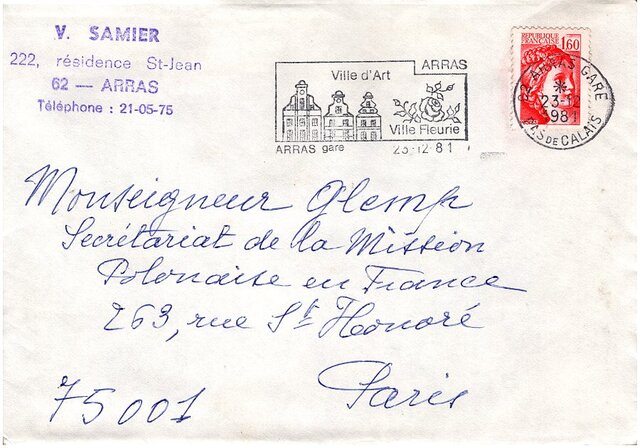 V. SAMIER
222, résidence St-Jean
62 — ARRAS
Téléphone : 21-05-75
ARRAS
Ville d'Art
Ville Fleurie
ARRAS gare 23-12 81
REPUBLIQUE
FRANÇAISE
1,60
ARRAS GARE
23-12
1981
PAS DE CALAIS
Monseigneur Glemp
Secrétariat de la Mission
Polonaise en France
263, rue St Honoré
Paris
75001